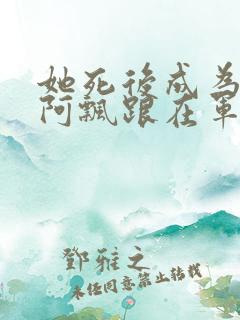 她死後成為
阿飄跟在軍
鄧雅之
未经同意禁止转载